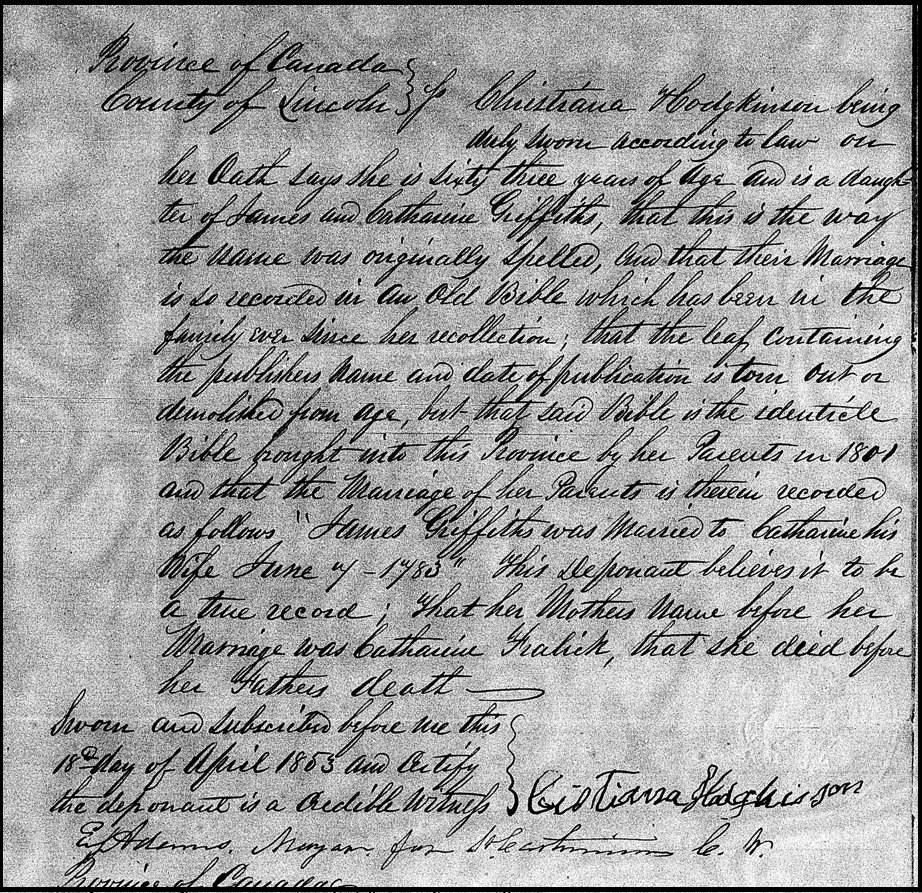 Province of Canada }
County of Lincoln } ss Christiana Hodgkinson being
duly sworn according to law on
her Oath says she is sixty three years of age and is a daugh-
ter of James and Catharine Griffiths, that this is the way
the name was originally spelled, and that their Marriage
is so recorded in an old Bible which has been in the
family ever since her recollection; that the leaf containing
the publishers name and date of publication is torn out or
demolished from age, but that said Bible is the identicle
Bible brought into this Province by her Parents in 1801
and that the Marriage of her Parents is therein recorded
as follows "James Griffiths was Married to Catharine his
Wife June 7 - 1783" This deponant believes it to be
a true record; that her Mothers name before her
Marriage was Catharine Fralick, that she died before
her Fathers death
Sworn and subscribed before me this
18th day of April 1853 and certify
the deponant is a credible witness } Cistiana Hodgkisson
Adams. Mayor. for St Catharines C. W.
Province of Canada